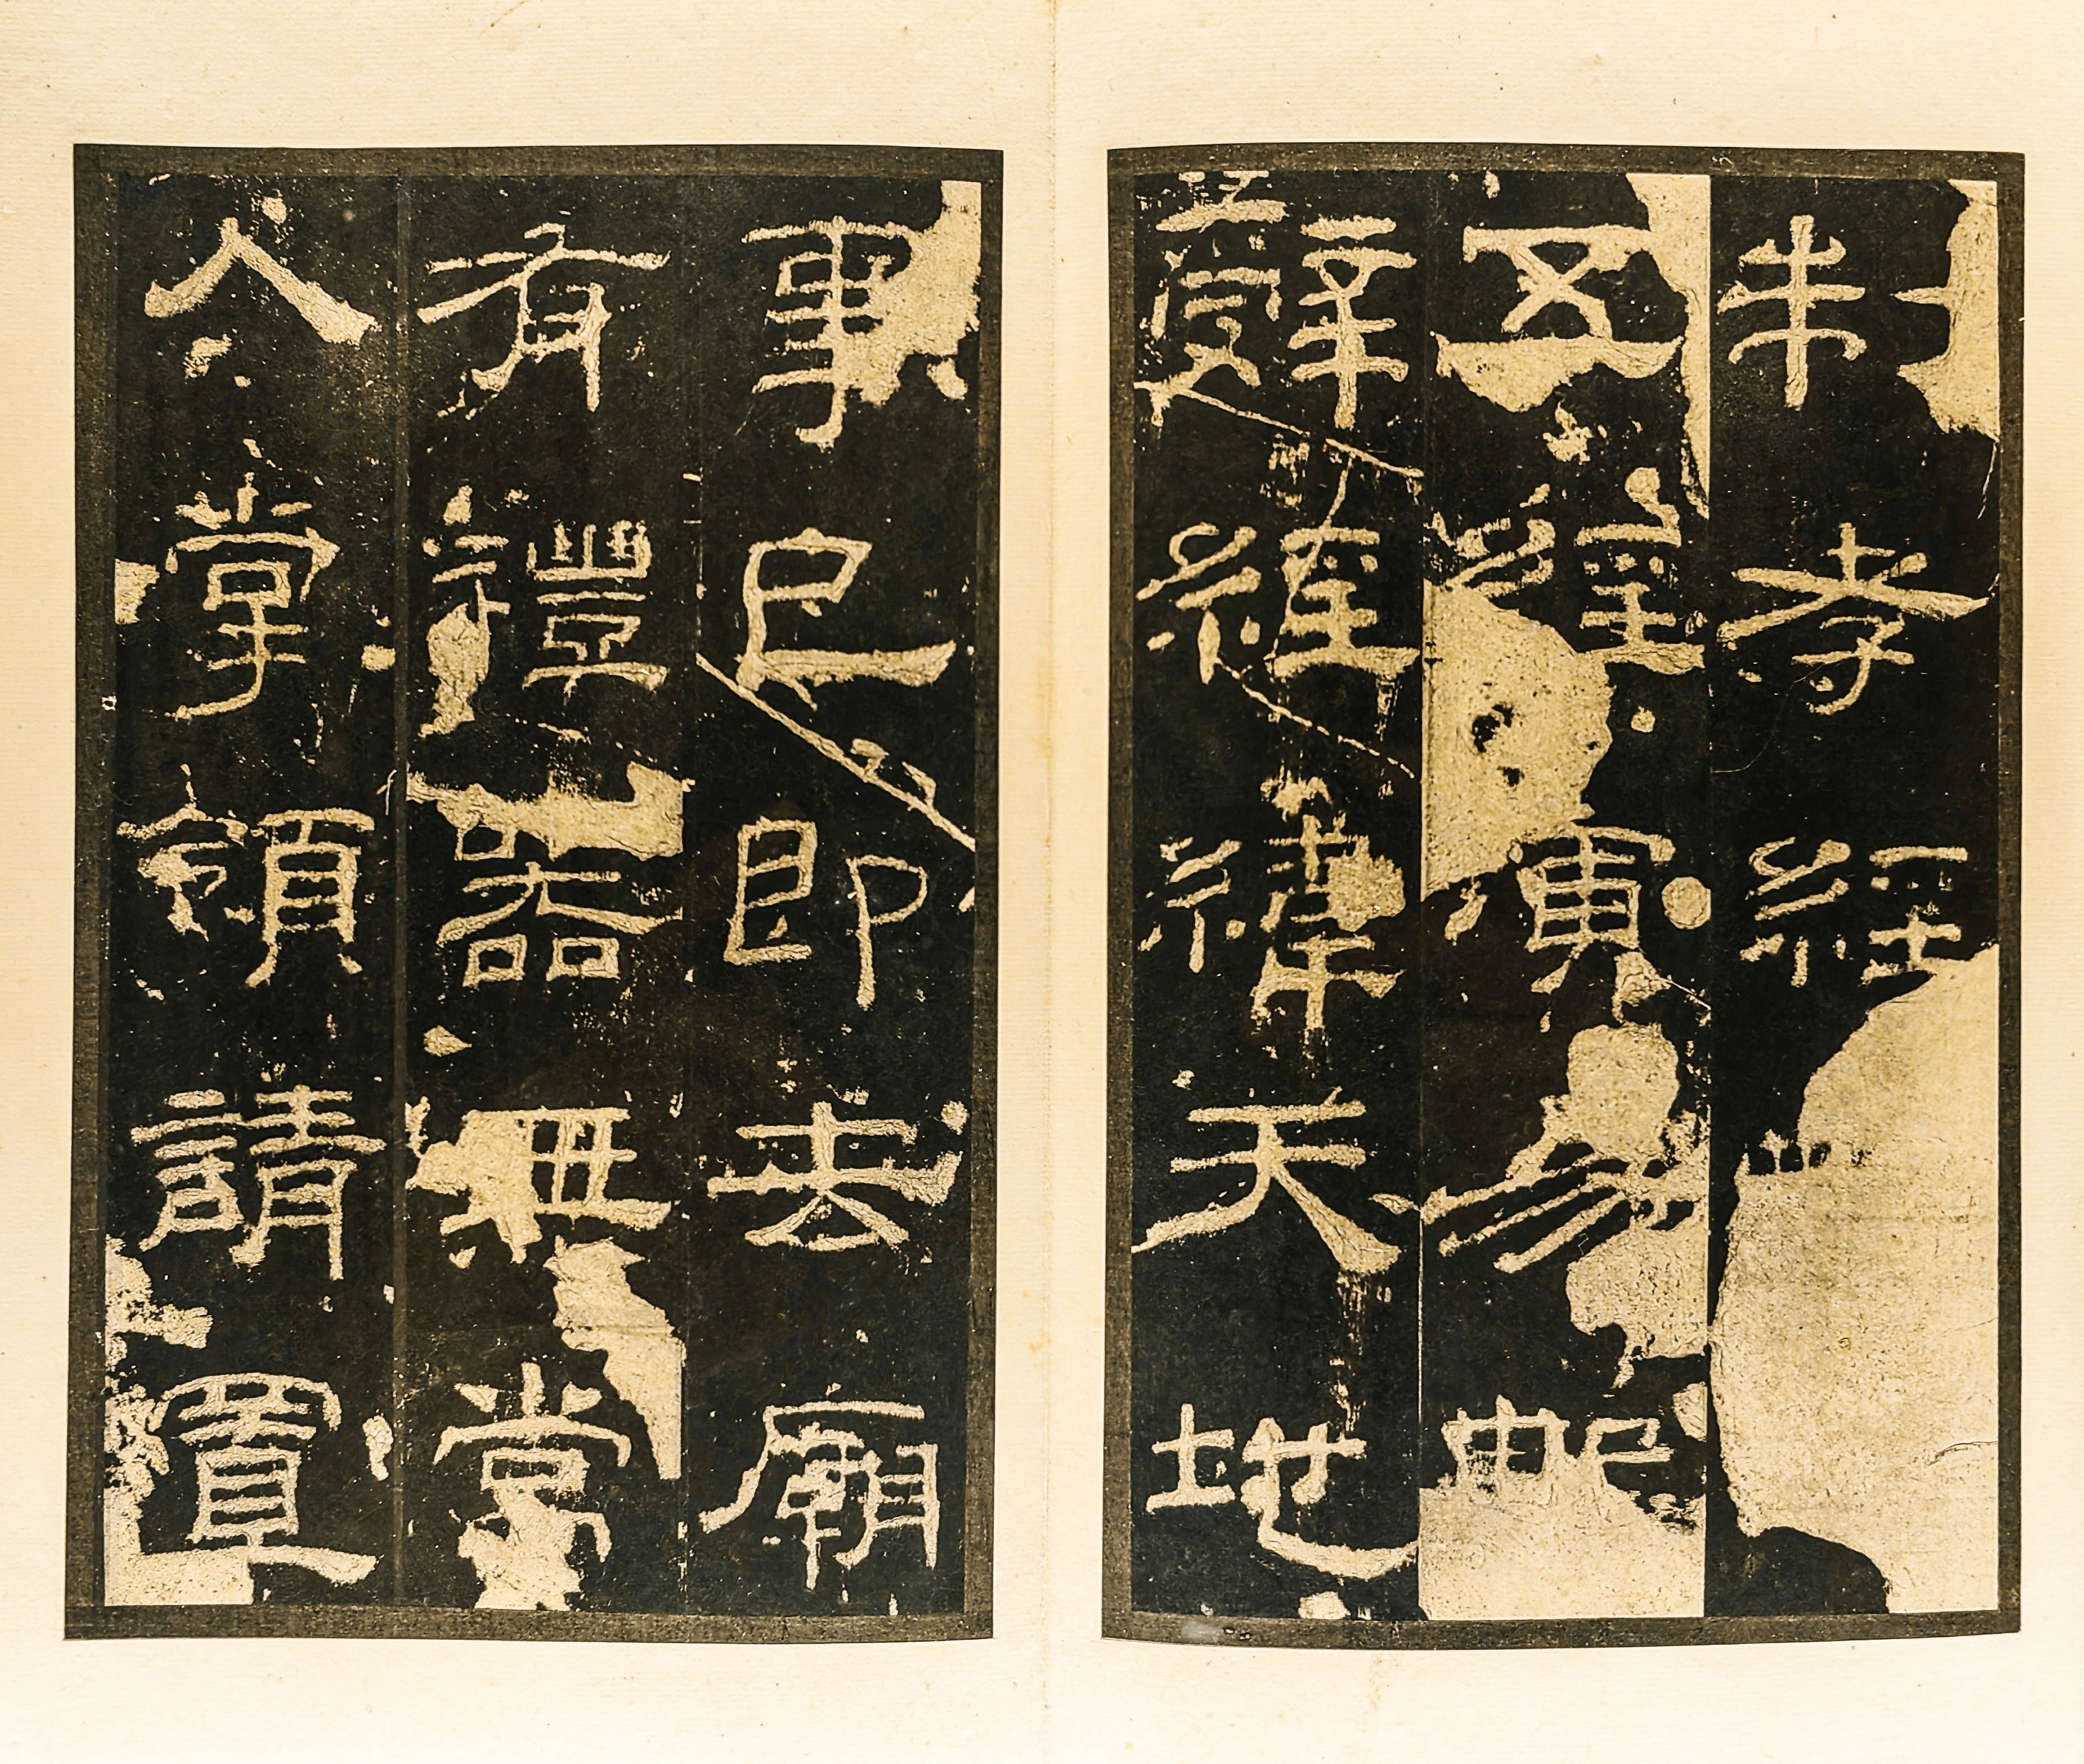 制孝經
五經演易繫
辭經緯天地
事已即去廟
有禮器無常
人掌領請置